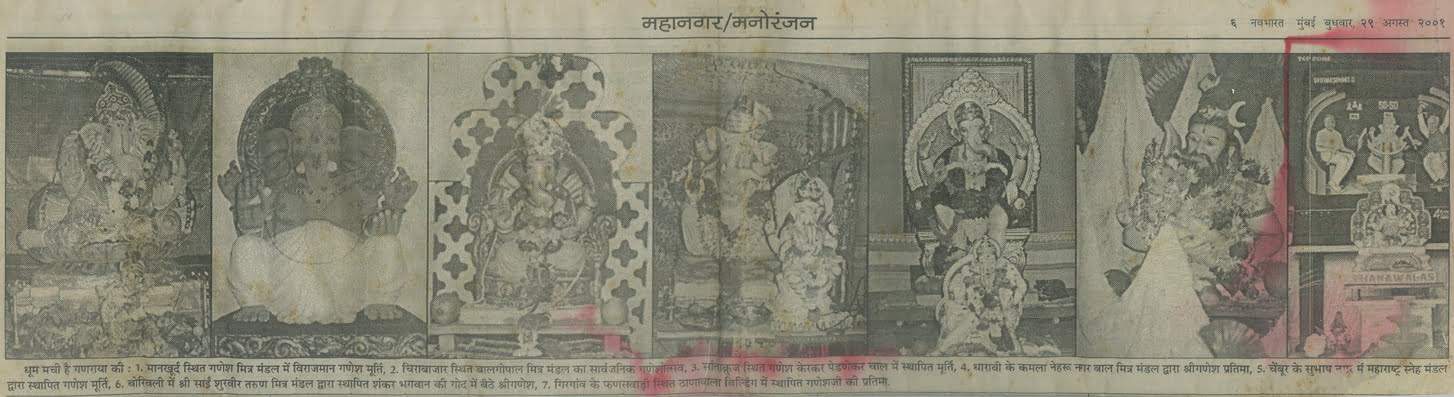 महानगर/मनोरंजन
६ नवभारत मुंबई बुधवार २९ अगस्त २००१
SO-SO
THANAWALAS
धूम मची है गणराया की : 1. मानखुर्द स्थित गणेश मित्र मंडल में विराजमान गणेश मूर्ति, 2. चिराबाजार स्थित बालगोपाल मित्र मंडल का सार्वजनिक गणेशोत्सव, 3. सांताक्रुज स्थित गणेश केरकर पेडणेकर चाल में स्थापित मूर्ति, 4. धारावी के कमला नेहरू नगर बाल मित्र मंडल द्वारा श्रीगणेश प्रतिमा, 5. चेंबूर के सुभाष नगर में महाराष्ट्र स्नेह मंडल
द्वारा स्थापित गणेश मूर्ति, 6. बोरिवली में श्री साई शुरवीर तरुण मित्र मंडल द्वारा स्थापित शंकर भगवान की गोद में बैठे श्रीगणेश, 7. गिरगांव के फणसवाडी स्थित ठाणावाला बिल्डिंग में स्थापित गणेशजी की प्रतिमा.